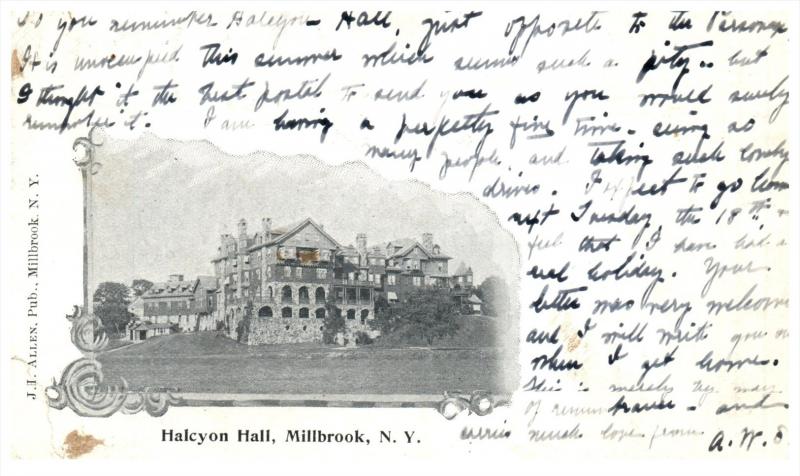 Do you remember Halcyon Hall, just opposite to the Parsonage
It is unoccupied this summer which seems such a pity - but
I thought it the best postal to send you as you would surely
remember it. I am having a perfectly fine time - seeing so
many people and taking such lovely
drives. I expect to go home
next Tuesday the 18th &
feel that I have had a
real holiday. Your
letter was very welcome
and I will write you
when I get home.
This is merely by way
of remembrance - and
carries much love from A. W. S
J. I. ALLEN, Pub., Millbrook, N. Y.
Halcyon Hall, Millbrook, N. Y.